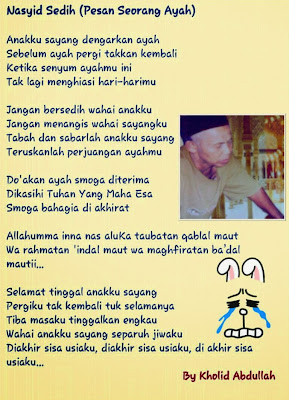 Nasyid Sedih (Pesan Seorang Ayah)
Anakku sayang dengarkan ayah
Sebelum ayah pergi takkan kembali
Ketika senyum ayahmu ini
Tak lagi menghiasi hari-harimu
Jangan bersedih wahai anakku
Jangan menangis wahai sayangku
Tabah dan sabarlah anakku sayang
Teruskanlah perjuangan ayahmu
Do'akan ayah smoga diterima
Dikasihi Tuhan Yang Maha Esa
Smoga bahagia di akhirat
Allahumma inna nas aluKa taubatan qablal maut
Wa rahmatan 'indal maut wa maghfiratan ba'dal
mautii...
Selamat tinggal anakku sayang
Pergiku tak kembali tuk selamanya
Tiba masaku tinggalkan engkau
Wahai anakku sayang separuh jiwaku
Diakhir sisa usiaku, diakhir sisa usiaku, di akhir sisa
usiaku...
By Kholid Abdullah